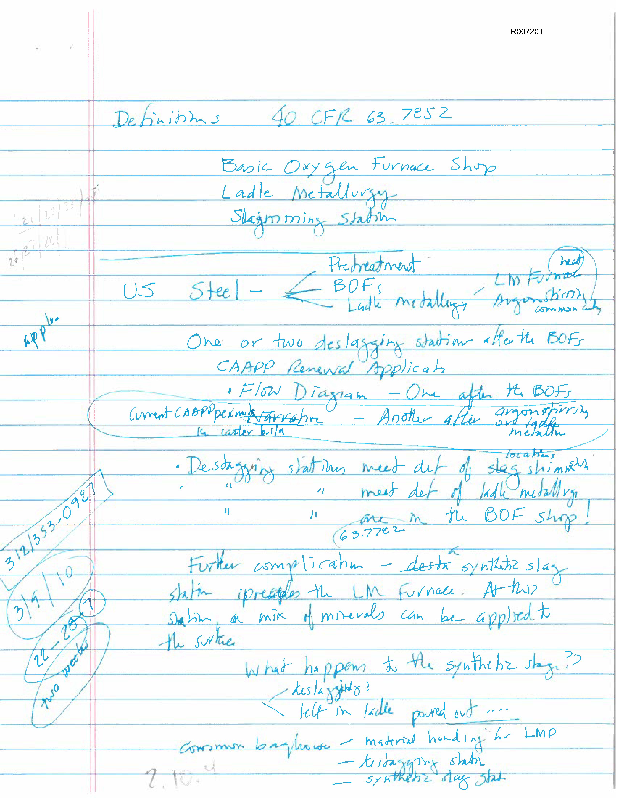 R007201
Definitions 40 CFR 63.7852
Basic Oxygen Furnace Shop
Ladle Metallurgy
Skimming Station
Pretreatment
US Steel - BOFs
Ladle Metallurgy LM Furnace
Argon stirring
common
One or two deslagging station after the BOFs
CAAPP Renewal Applicat
• Flow Diagram - One after the BOFs
Current CAAPP permit - Another after argon stirring
in caster bldg and ladle
metallur
locations
• Deslagging stations meet def of slag skimming
" " meet def of ladle metallurgy
" " are in the BOF shop!
63.7782
312/353-0987
3/9/10
22-23
two weeks
Further complication - synthetic slag
station precedes the LM Furnace. At this
station, a mix of minerals can be applied to
the surface
What happens to the synthetic slag??
deslagging?
left in ladle poured out ....
Common baghouse - material handling for LMP
- deslagging statin
- synthetic slag stat
2.10.4